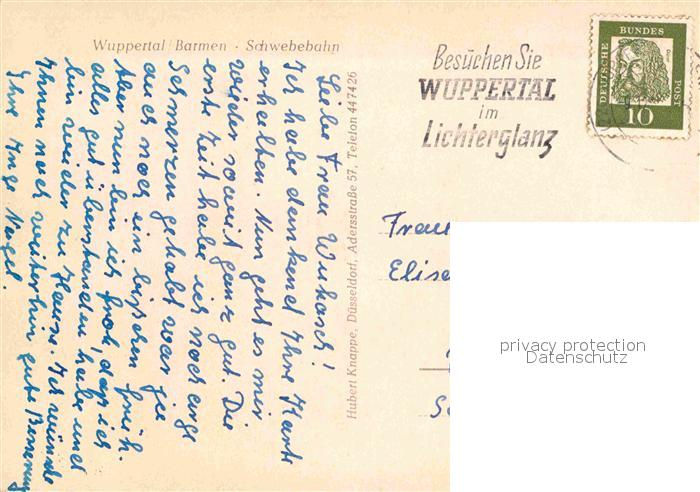 Wuppertal/Barmen · Schwebebahn
Liebe Frau Wukasch!
Ich habe dankend Ihre Karte
erhalten. Nun geht es mir
wieder soweit ganz gut. Die
erste Zeit habe ich noch arge
Schmerzen gehabt war ja
auch noch ein bißchen früh.
Aber nun bin ich froh, daß ich
alles gut überstanden habe und
bin wieder zu Hause. Ich wünsche
Ihnen noch weiterhin gute Besserung
Ihre Inge Nagel.
Hubert Knappe, Düsseldorf, Adersstraße 57, Telefon 447426
Besuchen Sie
WUPPERTAL
im
Lichterglanz
DEUTSCHE
BUNDES
POST
Dürer
10
Frau
Elise
privacy protection
Datenschutz